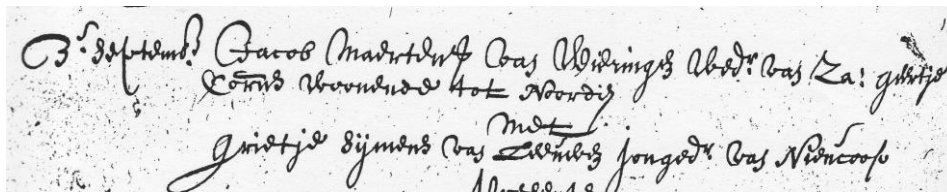 3 Septemb: Jacob Maertensz van Wieringen Wedr van Za: Geertje
Corns woonende tot Nordyc
Met
Grietje Symens van jonged: van